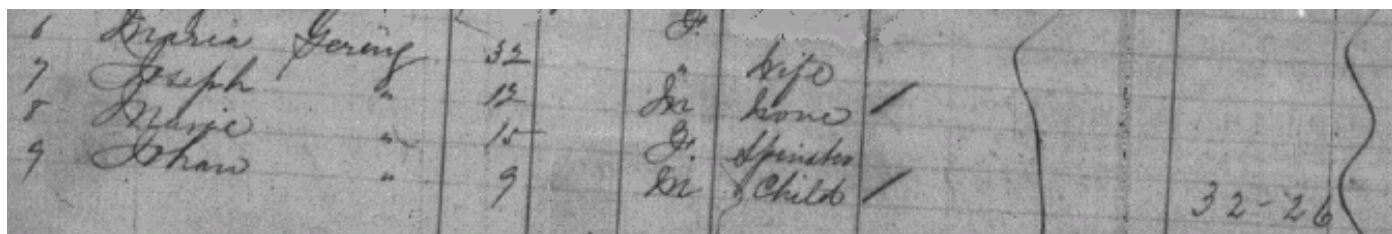 6 Maria Gering 32 F. Wife
7 Joseph " 12 M None /
8 Marie " 15 F. Spinster
9 Johan " 9 M Child /
32-26